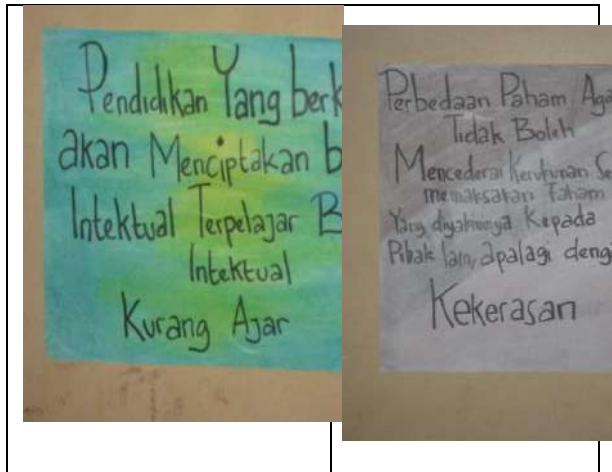 Pendidikan Yang berk
akan Menciptakan b
Intektual Terpelajar B
Intektual
Kurang Ajar
Perbedaan Paham Aga
Tidak Boleh
Mencederai Kerukunan Se
memaksakan Faham
Yang diyakininya Kepada
Pihak lain, apalagi deng
Kekerasan